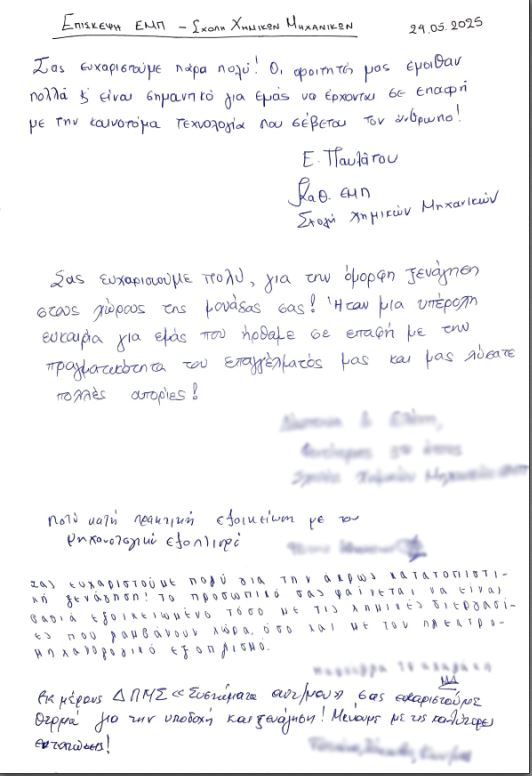 ΕΠΙΣΚΕΨΗ ΕΜΠ – ΣΧΟΛΗ ΧΗΜΙΚΩΝ ΜΗΧΑΝΙΚΩΝ
29.05.2025
Σας ευχαριστούμε πάρα πολύ! Οι φοιτητές μας έμαθαν
πολλά & είναι σημαντικό για εμάς να έρχονται σε επαφή
με την καινοτόμα τεχνολογία που σέβεται τον άνθρωπο!
Ε. Παυλάτου
Καθ. ΕΜΠ
Σχολή Χημικών Μηχανικών
Σας ευχαριστούμε πολύ, για την όμορφη ξενάγηση
στους χώρους της μονάδας σας! Ήταν μια υπέροχη
ευκαιρία για εμάς που ήρθαμε σε επαφή με την
πραγματικότητα του επαγγέλματός μας και μας λύσατε
πολλές απορίες!
Πολύ καλή πρακτική εξοικείωση με τον
μηχανολογικό εξοπλισμό
Σας ευχαριστούμε πολύ για την άκρως κατατοπιστι-
κή ξενάγηση! Το προσωπικό σας φαίνεται να είναι
εξοικειωμένο τόσο με τις χημικές διεργασί-
ες που λαμβάνουν χώρα, όσο και με τον ηλεκτρο-
μηχανολογικό εξοπλισμό.
Εκ μέρους ΔΠΜΣ «Συστήματα αυτ/μου» σας ευχαριστούμε
θερμά για την υποδοχή και ξενάγηση! Μένουμε με τις καλύτερες
εντυπώσεις!